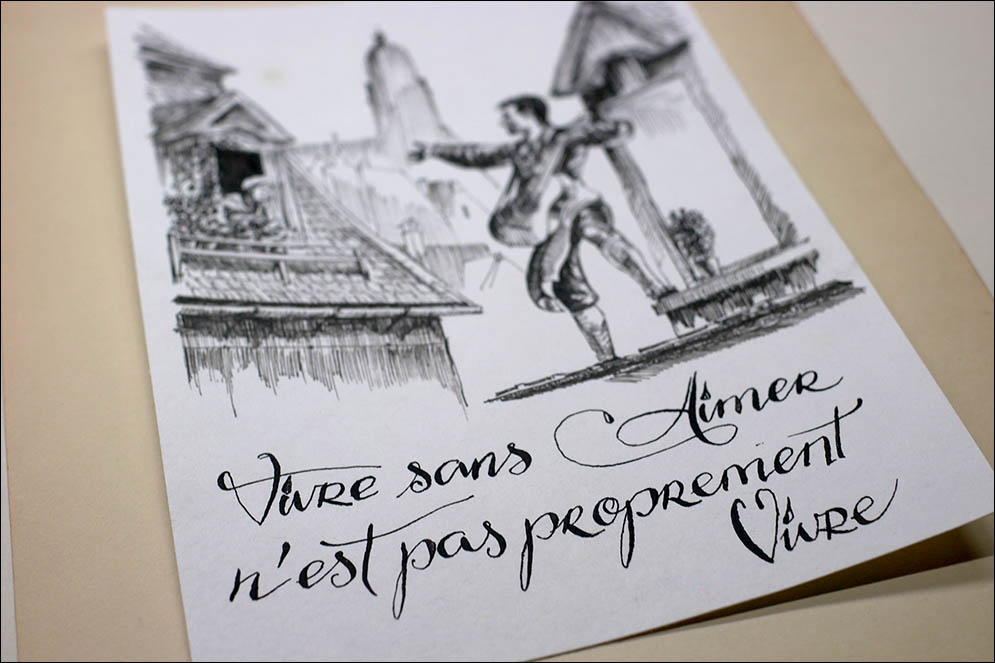 Vivre sans Aimer
n'est pas proprement
Vivre